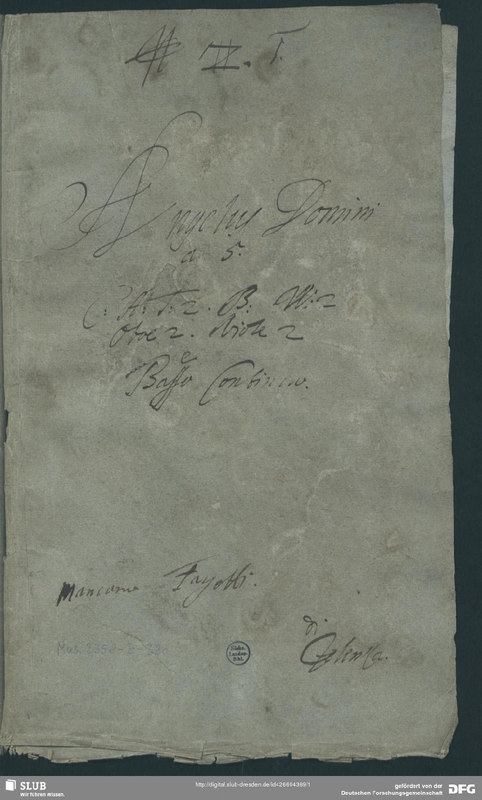 T.
Angelus Domini
a 5.
C: A: T: 2. B: Vi: 2
Oboe 2. Viole 2
e
Basso Continuo.
Mancano Fagotti.
di
Mus. 2358-
Sächs.
Landes-
Bibl.
SLUB
Wir führen Wissen.
http://digital.slub-dresden.de/id426604369/1
gefördert von der
Deutschen Forschungsgemeinschaft
DFG